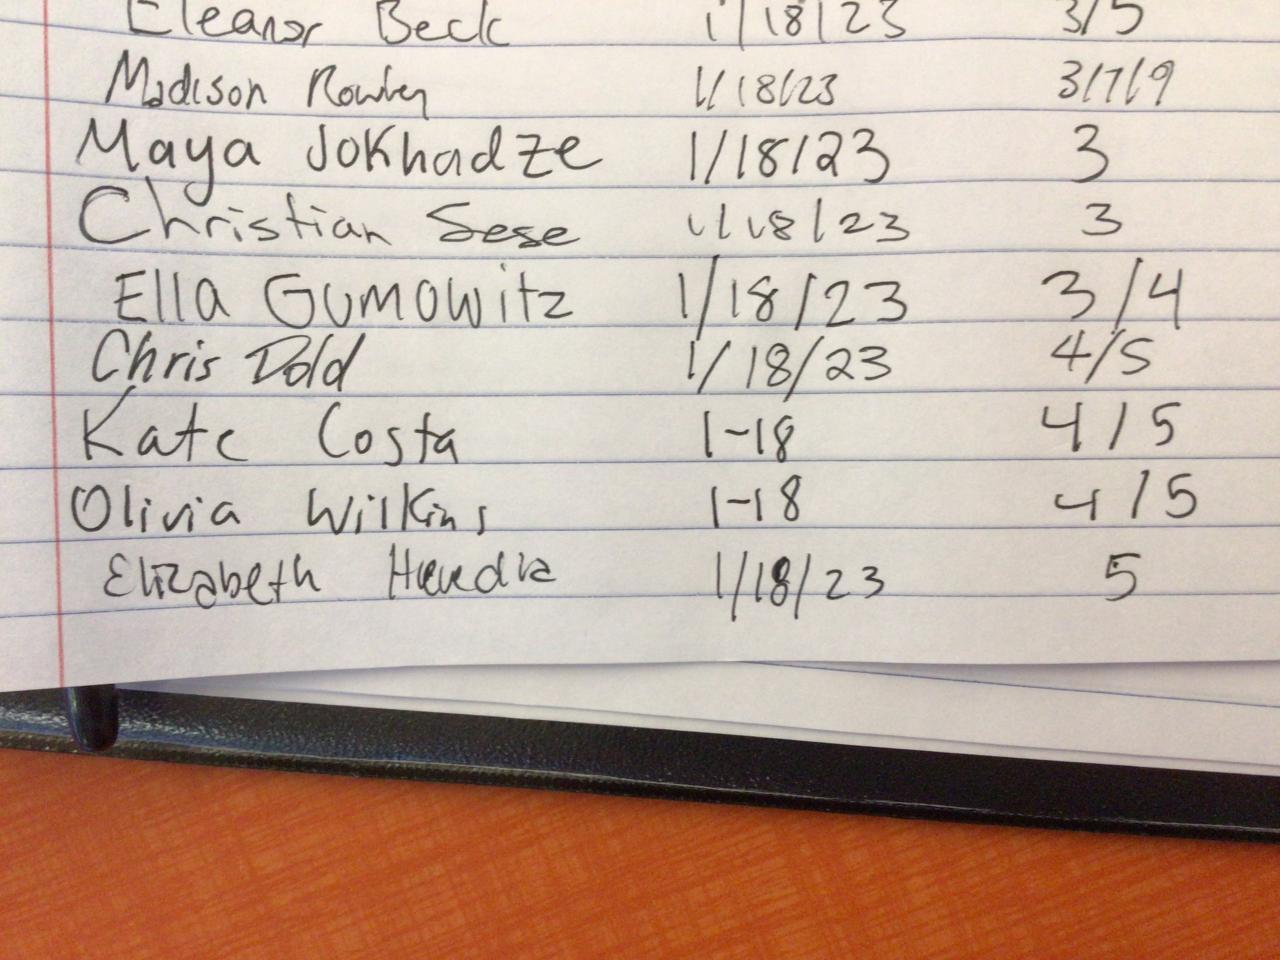 Eleanor Beck 1/18/23 3/5
Madison Rowley 1/18/23 3/7/9
Maya Jokhadze 1/18/23 3
Christian Sese 1/18/23 3
Ella Gumowitz 1/18/23 3/4
Chris Dold 1/18/23 4/5
Kate Costa 1-18 4/5
Olivia Wilkins 1-18 4/5
Elizabeth 1/18/23 5